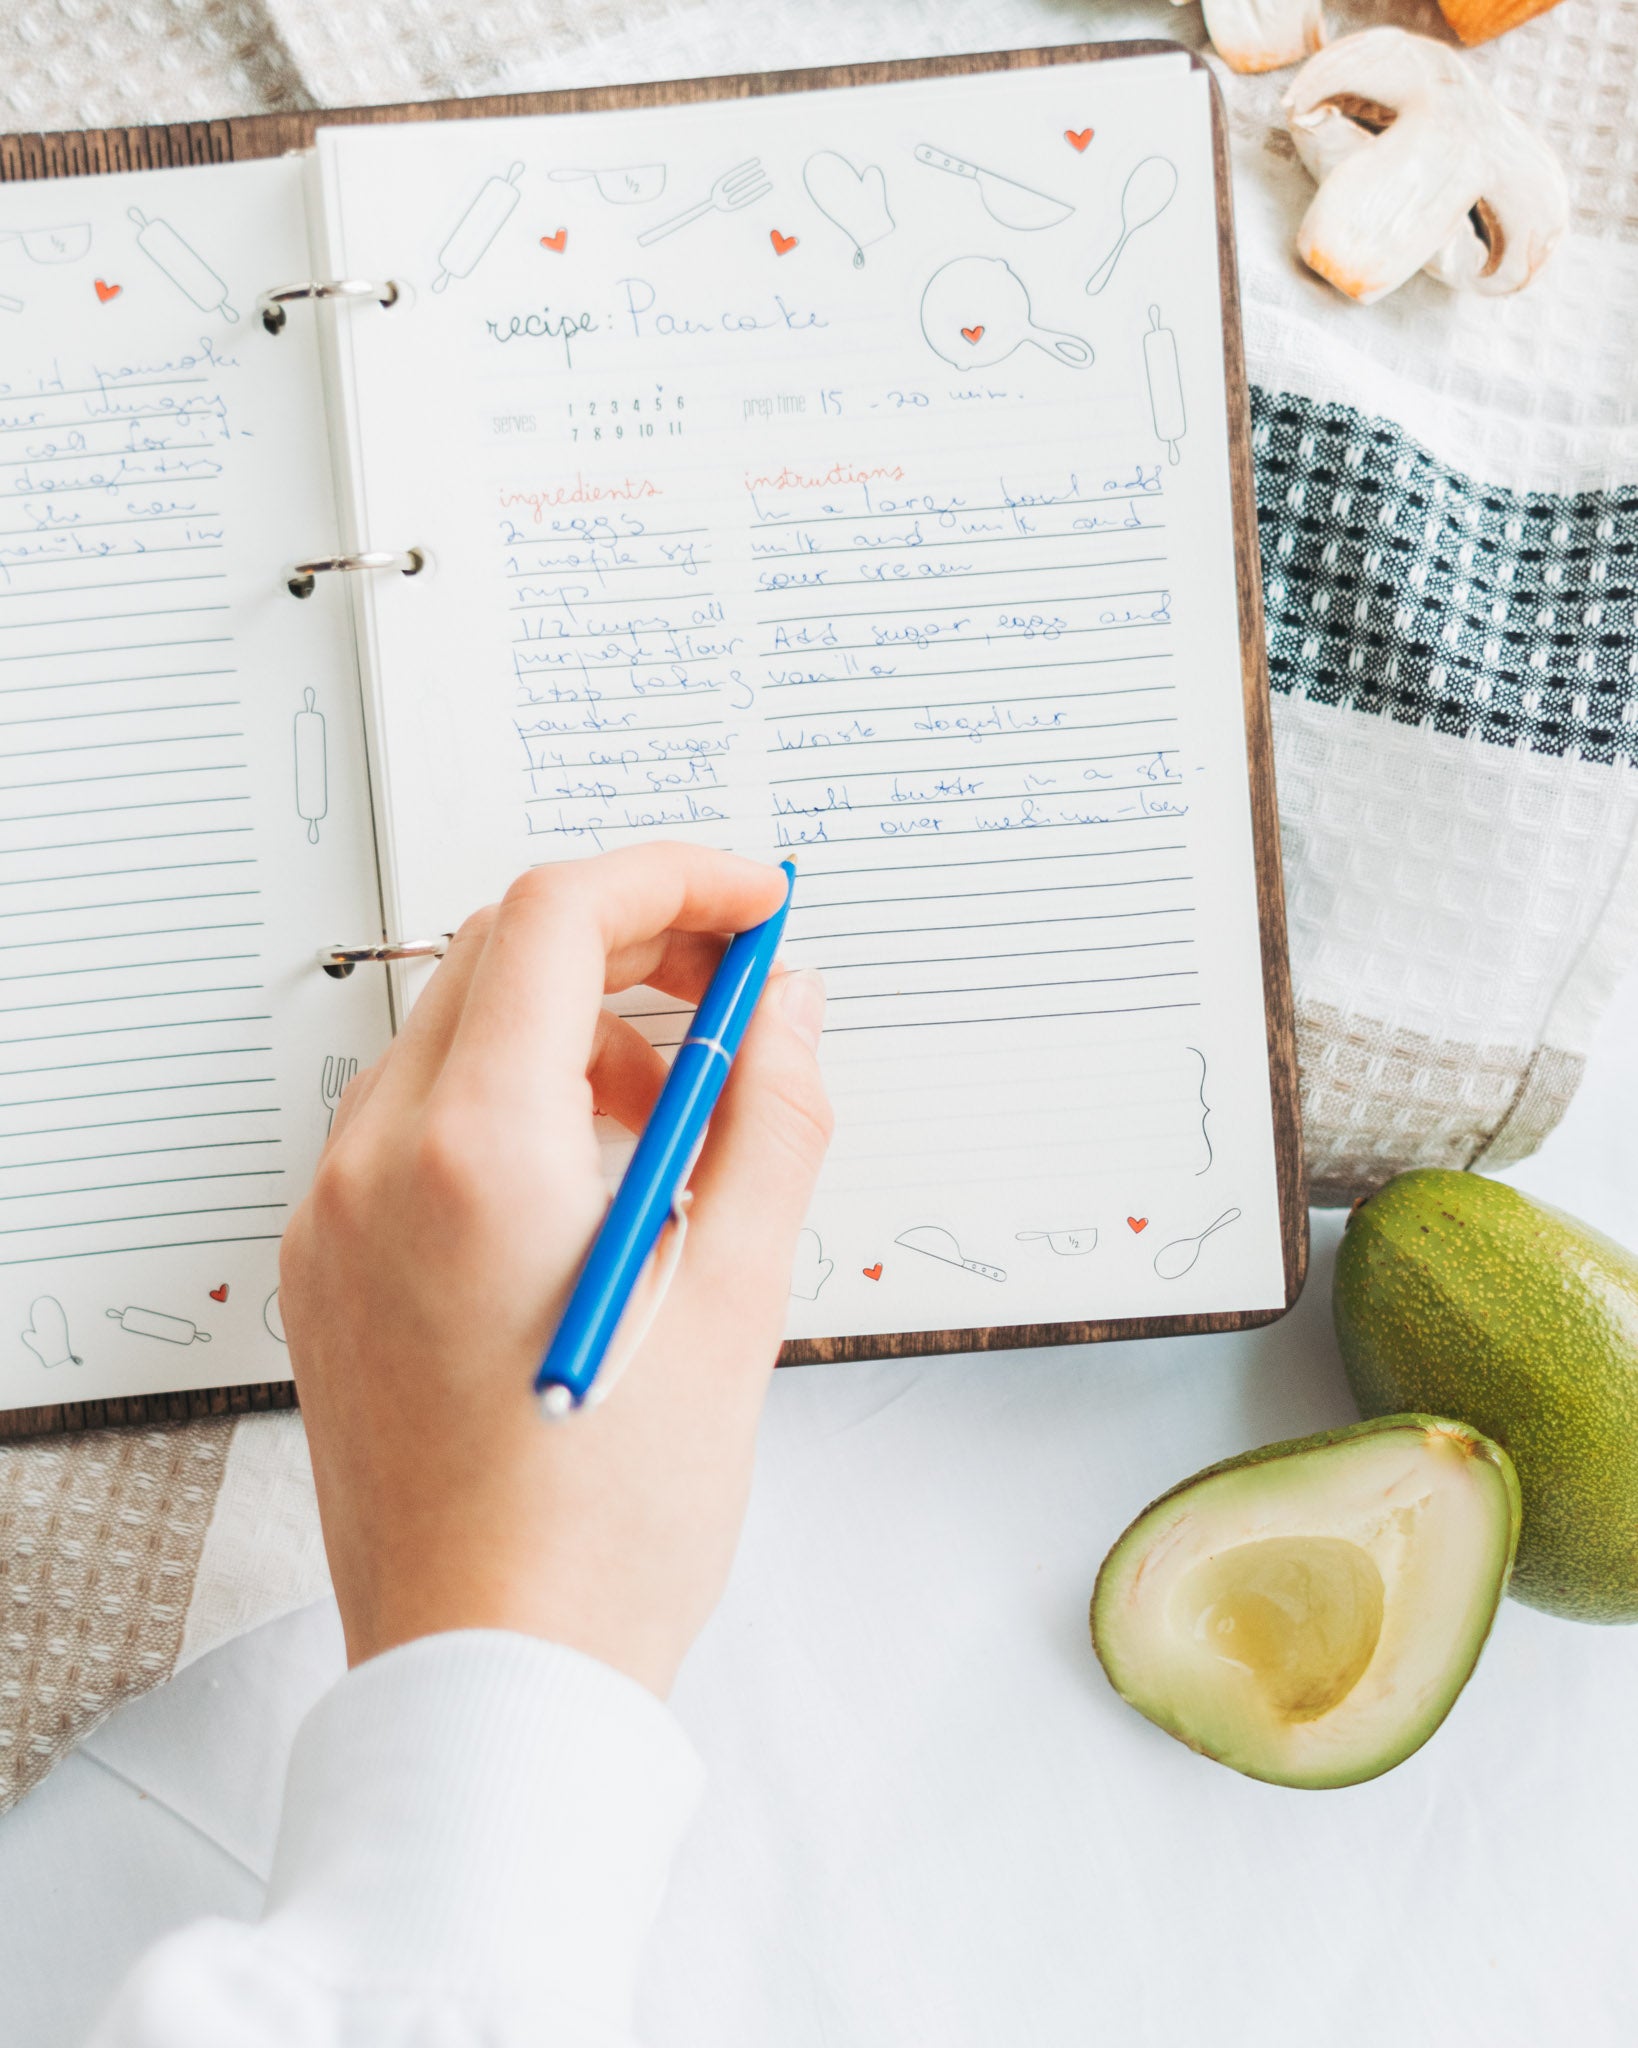 1/2
it pancake
hungry
call for it-
daughters
she can
in
1/2
recipe: Pancake
serves 1 2 3 4 5 6
7 8 9 10 11
prep time 15 - 20 min.
ingredients
2 eggs
1 maple sy-
rup
1 1/2 cups all
purpose flour
2 tsp baking
powder
1/4 cup sugar
1 tsp salt
1 tsp vanilla
instructions
In a large bowl add
milk and milk and
sour cream
Add sugar, eggs and
vanilla
Wisk together
Melt butter in a skil-
let over medium-low
1/2